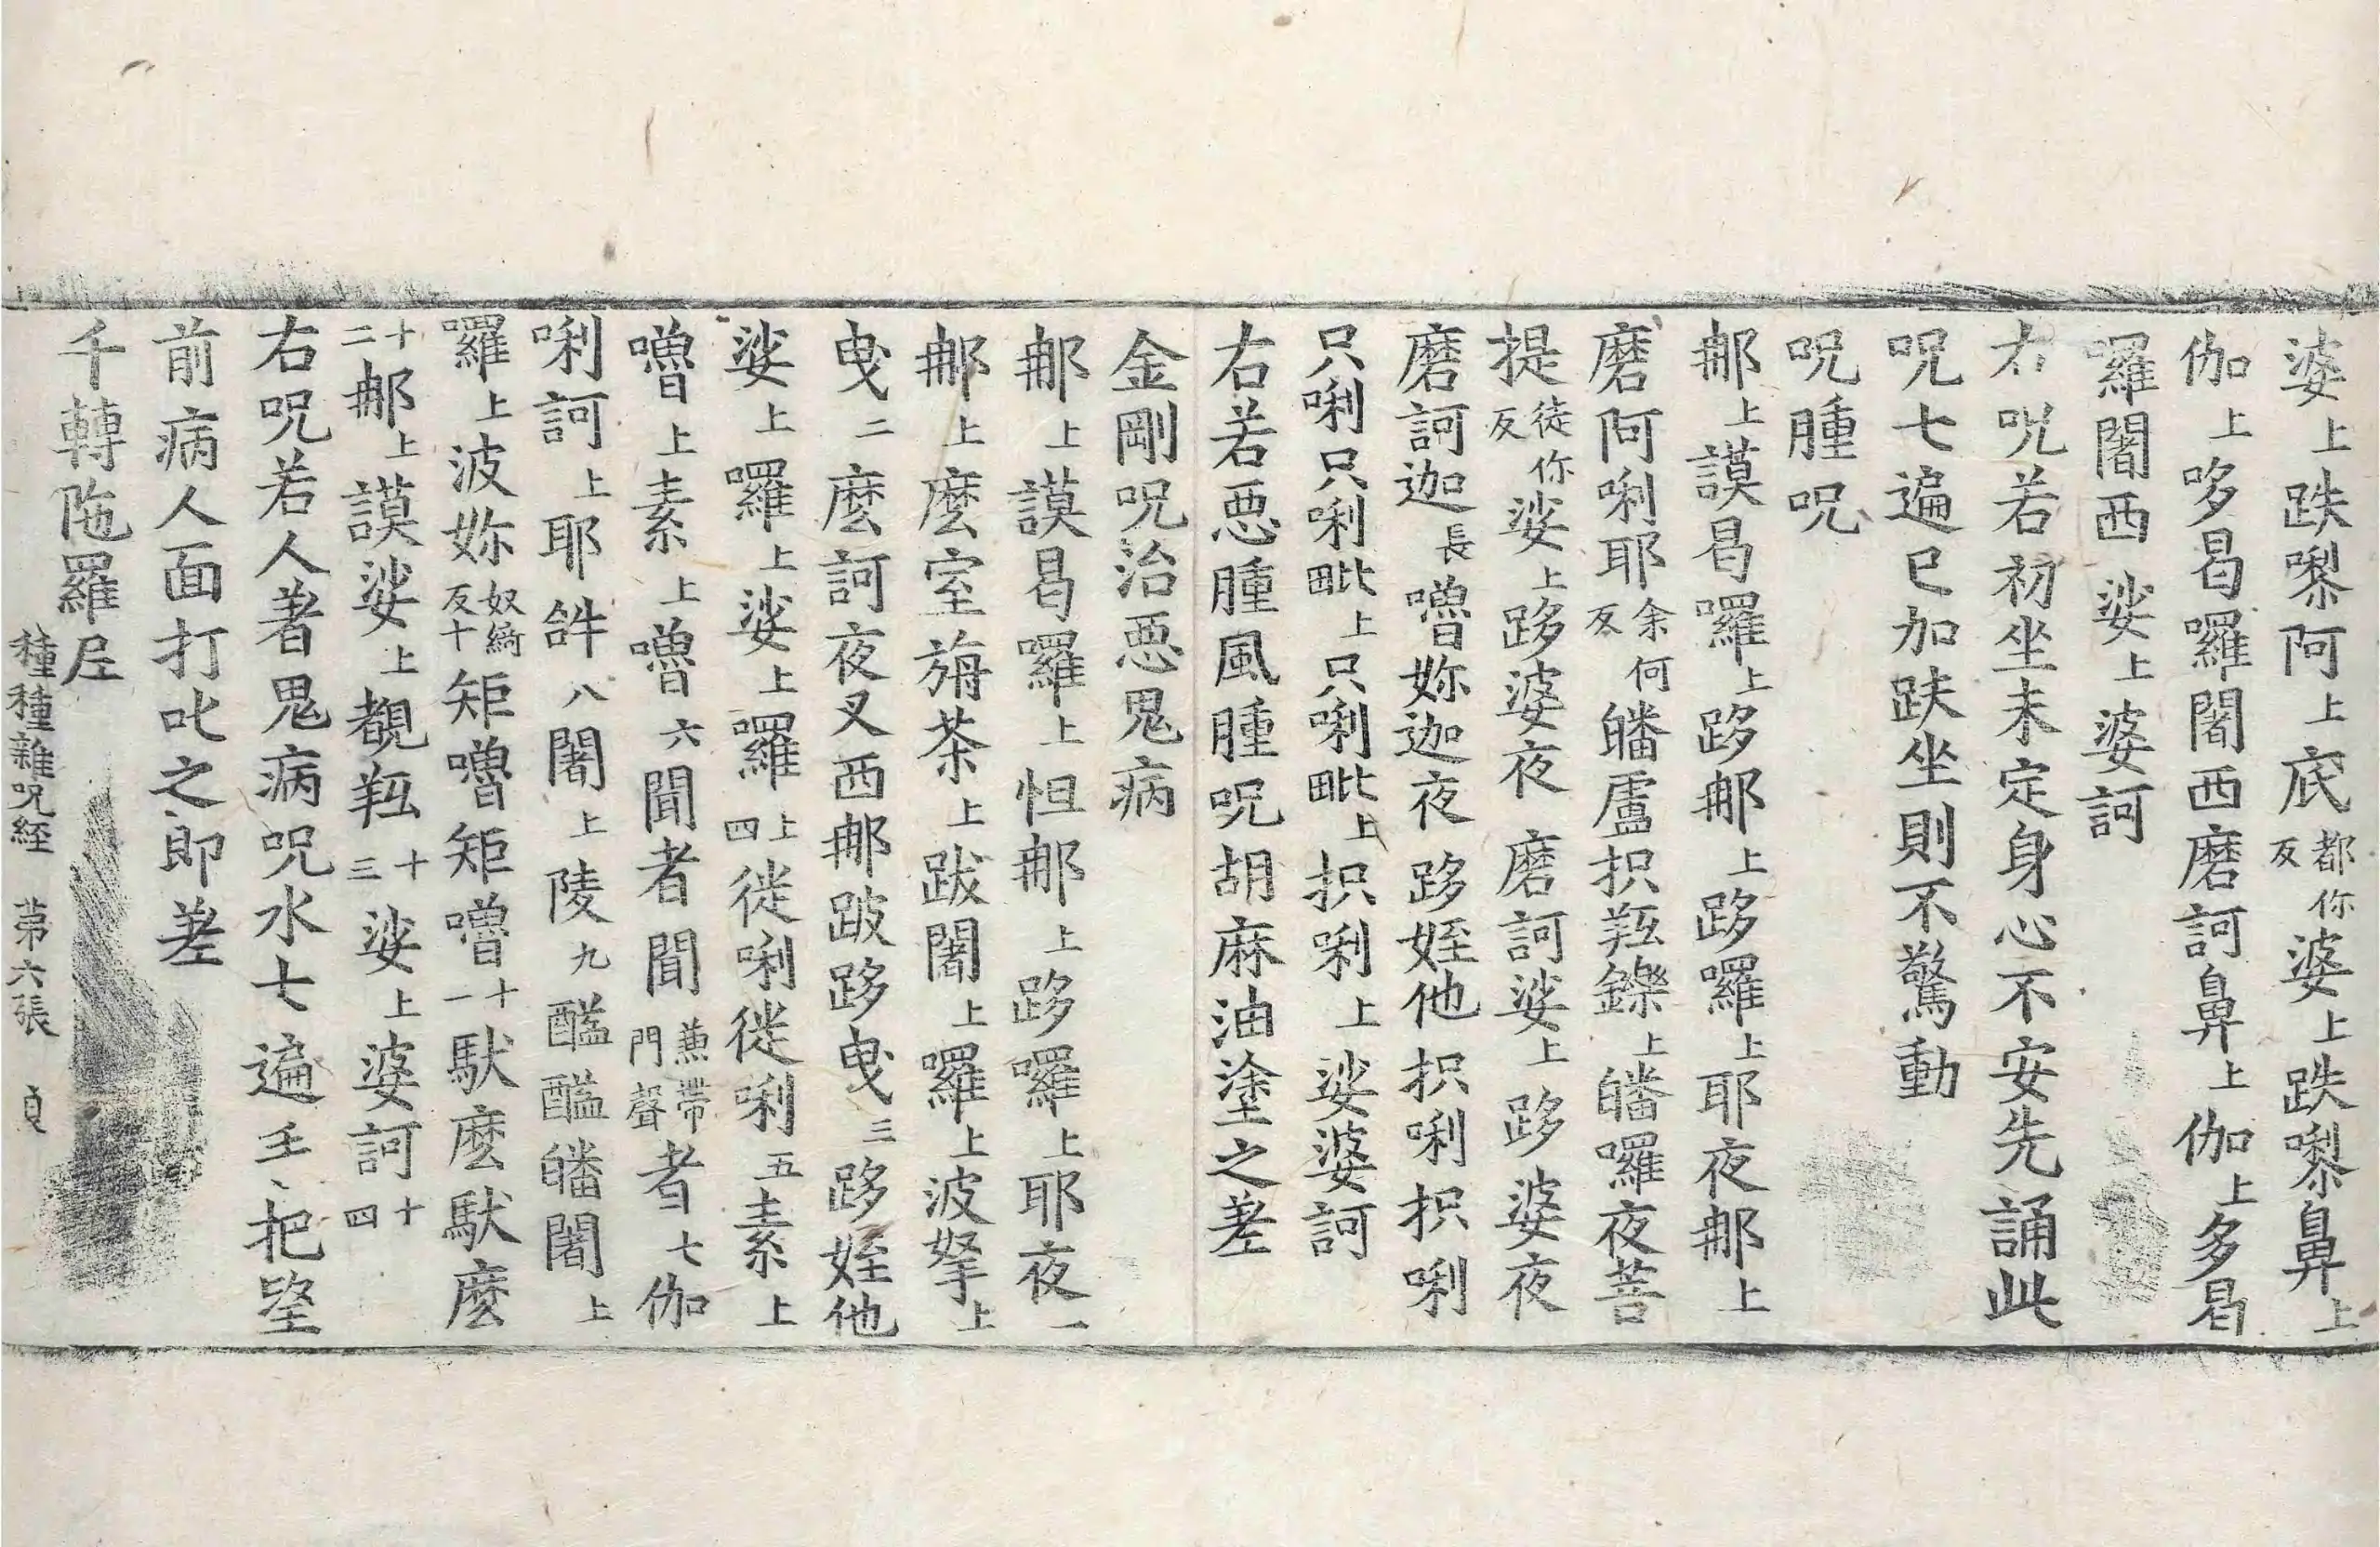 婆上跌㗚阿上底都你反婆上跌㗚鼻上
伽上哆曷囉闍西磨訶鼻上伽上多曷
囉闍西娑上婆訶
右呪若初坐未定身心不安先誦此
呪七遍已加趺坐則不驚動
呪腫呪
那上謨曷囉上跢那上跢囉上耶夜那上
磨阿唎耶余何反皤盧枳羝鑠上皤囉夜菩
提徒你反娑上跢婆夜磨訶娑上跢婆夜
磨訶迦長嚕妳迦夜跢姪他枳唎枳唎
只唎只唎毗上只唎毗上枳唎上娑婆訶
右若惡腫風腫呪胡麻油塗之差
金剛呪治惡鬼病
那上謨曷囉上怛那上跢囉上耶夜一
那上麼室旃茶上跋闍上囉上波拏上
曳二麼訶夜叉西那跛跢曳三跢姪他
娑上囉上娑上囉上四徙唎徙唎五素上
嚕上素上嚕六聞者聞兼帶門聲者七伽
唎訶上耶䤈八闍上陵九醯醯皤闍上
囉上波妳奴綺反十矩嚕矩嚕十一馱麼馱麼
十二那上謨娑上覩羝十三娑上婆訶十四
右呪若人著鬼病呪水七遍手把望
前病人面打叱之即差
千轉陁羅尼
種種雜呪經 第六張 貞